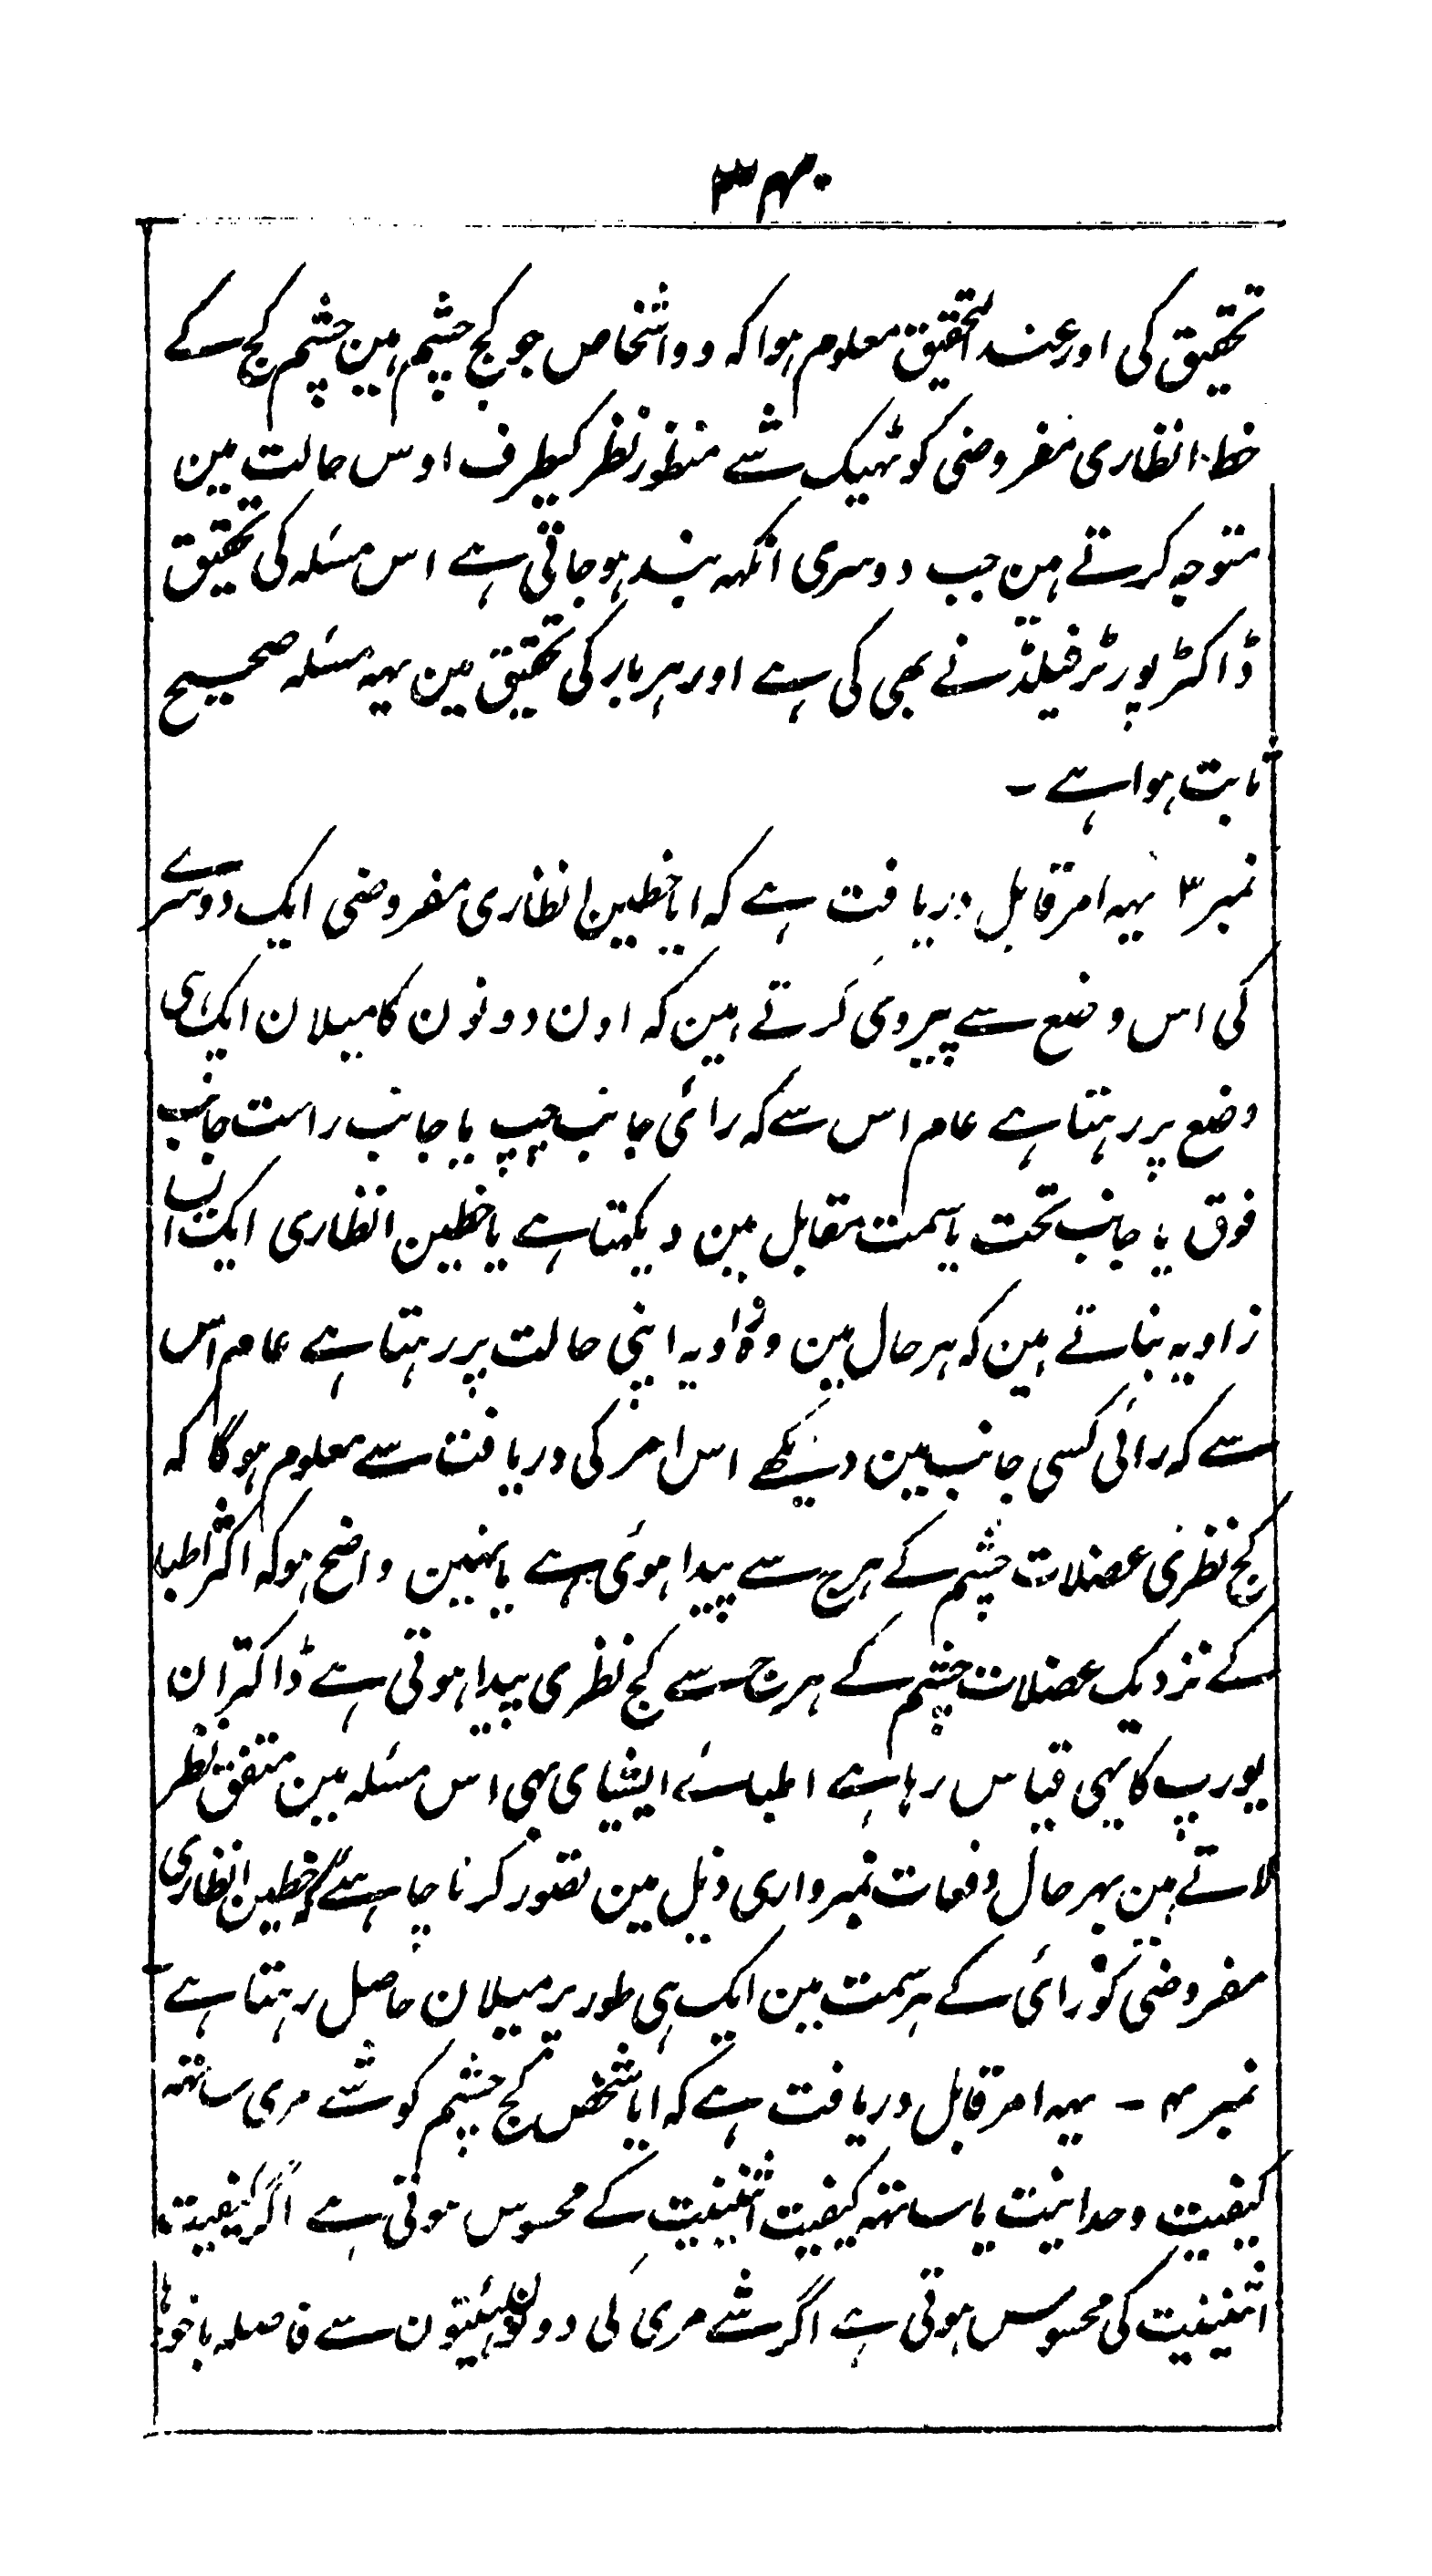 ۳۴۰
تحقیق کی اور عند التحقیق معلوم ہوا کہ وو اشخاص جو کج چشم ہین چشم کج کے
خط انظاری مفروضی کو ٹہیک شے منظور نظر کیطرف اوس حالت مین
متوجہ کرتے ہین جب دوسری انکہہ بند ہو جاتی ہے اس مسئلہ کی تحقیق
ڈاکٹر پورٹر فیلڈ نے بھی کی ہے اور ہر بار کی تحقیق مین یہہ مسئلہ صحیح
ثابت ہوا ہے ۔
نمبر ۳ یہہ امر قابل دریافت ہے کہ ایا خطین انظاری مفروضی ایک دوسرے
کی اس وضع سے پیروی کرتے ہین کہ اون دونون کا میلان ایک ہی
وضع پر رہتا ہے عام اس سے کہ رائی جانب چپ یا جانب راست جانب
فوق یا جانب تحت یا سمت مقابل مین دیکہتا ہے یا خطین انظاری ایک ان
زاویہ بناتے ہین کہ ہر حال مین وہ زاویہ اپنی حالت پر رہتا ہے عام اس
سے کہ رائی کسی جانب مین دیکھے اس امر کی دریافت سے معلوم ہوگا کہ
کج نظری عضلات چشم کے ہرج سے پیدا ہوئی ہے یا نہین واضح ہو کہ اکثر اطبا
کے نزدیک عضلات چشم کے ہرج سے کج نظری پیدا ہوتی ہے ڈاکتران
یورپ کا یہی قیاس رہا ہے اطبائے ایشیای بہی اس مسئلہ مین متفق نظر
لاتے ہین بہر حال دفعات نمبر واری ذیل مین تصور کرنا چاہئے خطین انظاری
مفروضی کو رائی کے ہر سمت مین ایک ہی طور پر میلان حاصل رہتا ہے
نمبر ۴ ۔ یہہ امر قابل دریافت ہے کہ ایا شخص کج چشم کو شے مری ساتہہ
کیفیت وحدانیت یا ساتہہ کیفیت اثنینیت کے محسوس ہوتی ہے اگر کیفیت
اثنینیت کی محسوس ہوتی ہے اگر شے مری کی دونون سے فاصلہ باخود ہا